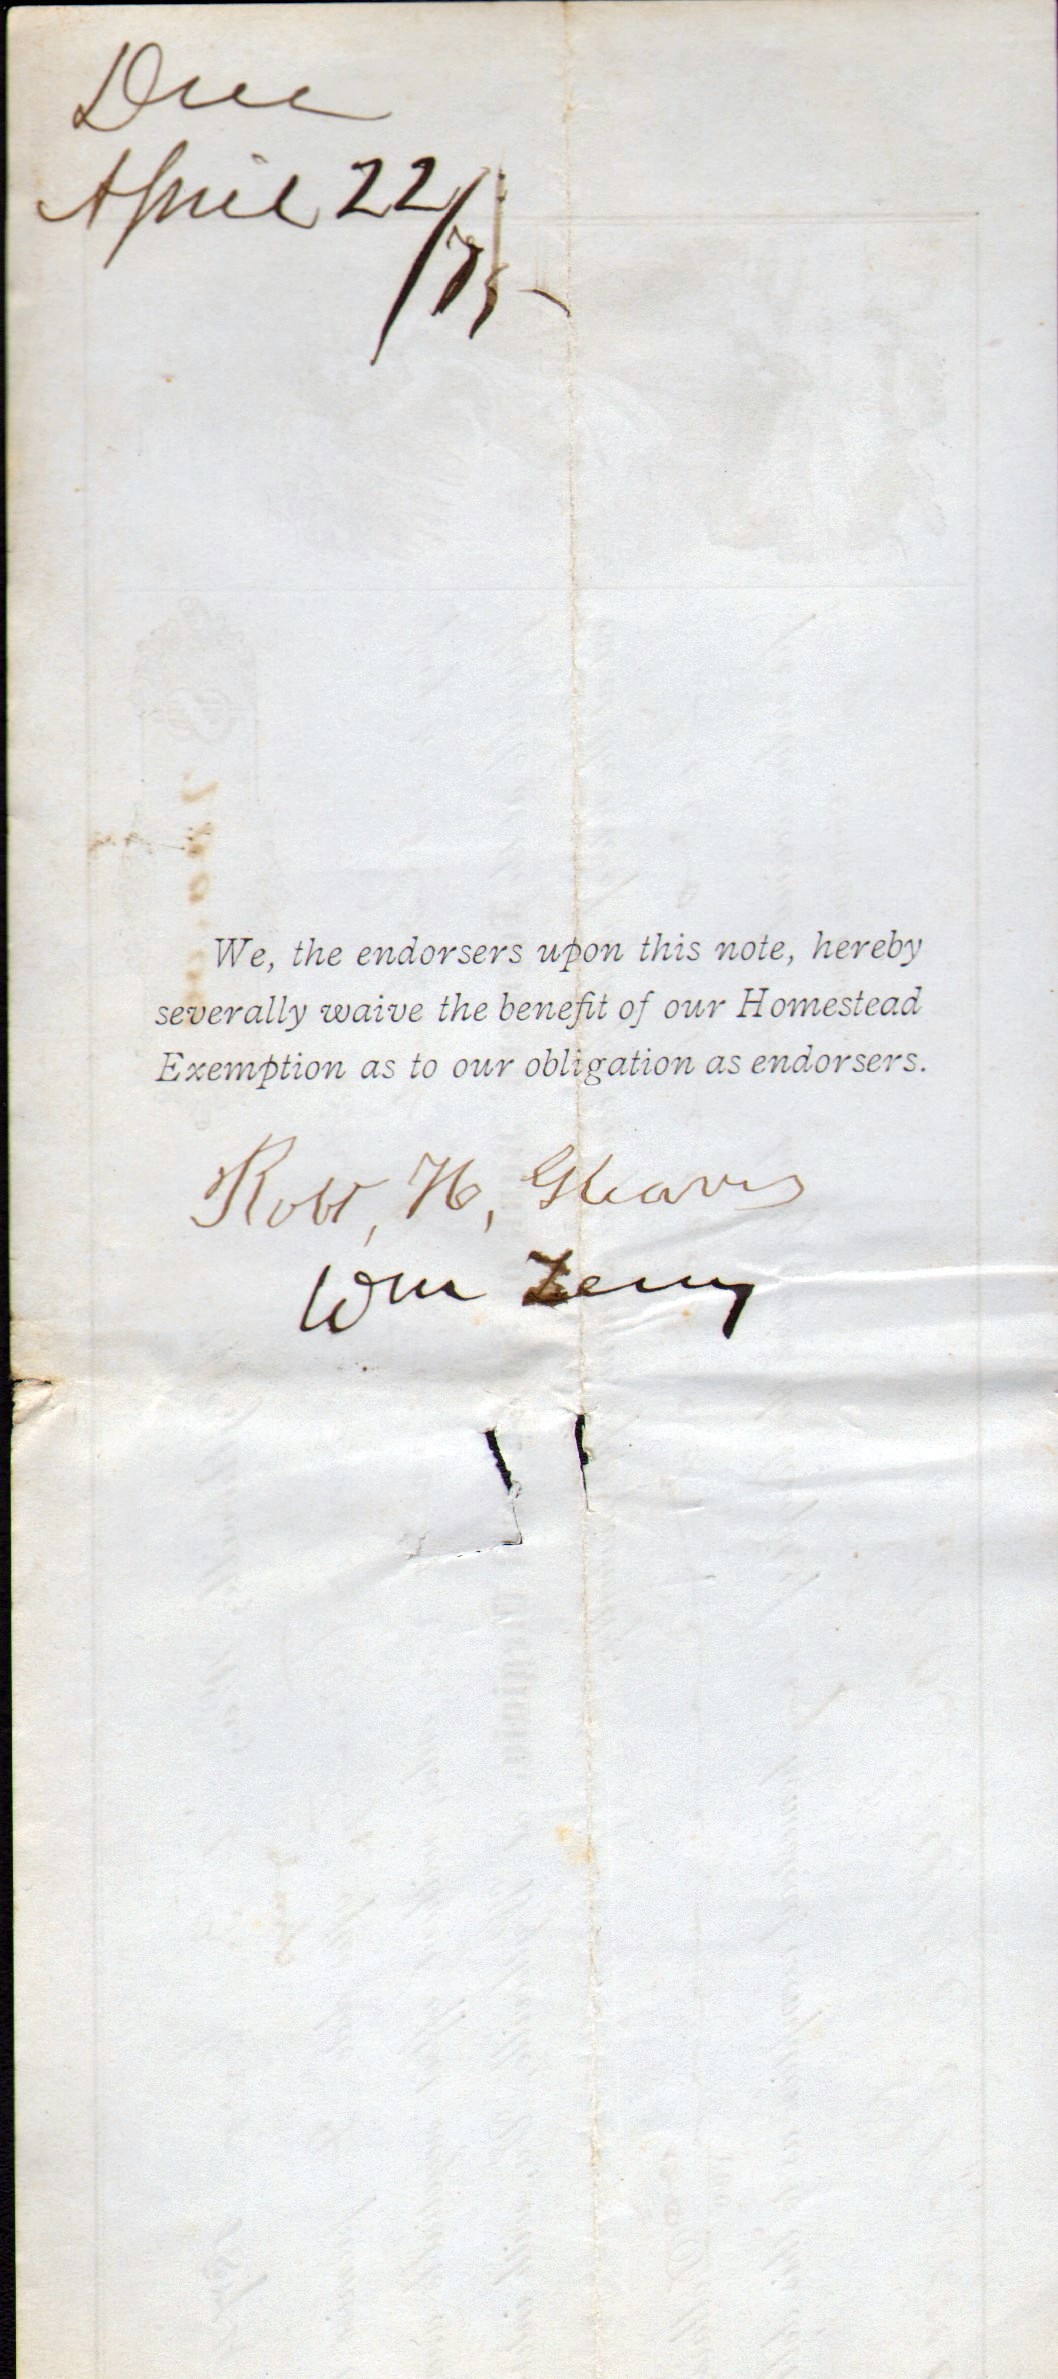 Due
April 22/75
We, the endorsers upon this note, hereby
severally waive the benefit of our Homestead
Exemption as to our obligation as endorsers.
Robt, H, Gleaves
Wm Terry